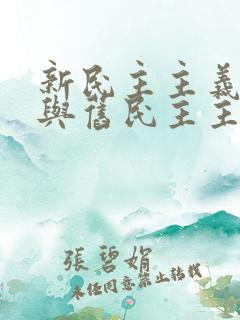 新民主主義
與舊民主主
張碧娟
未經同意禁止轉載